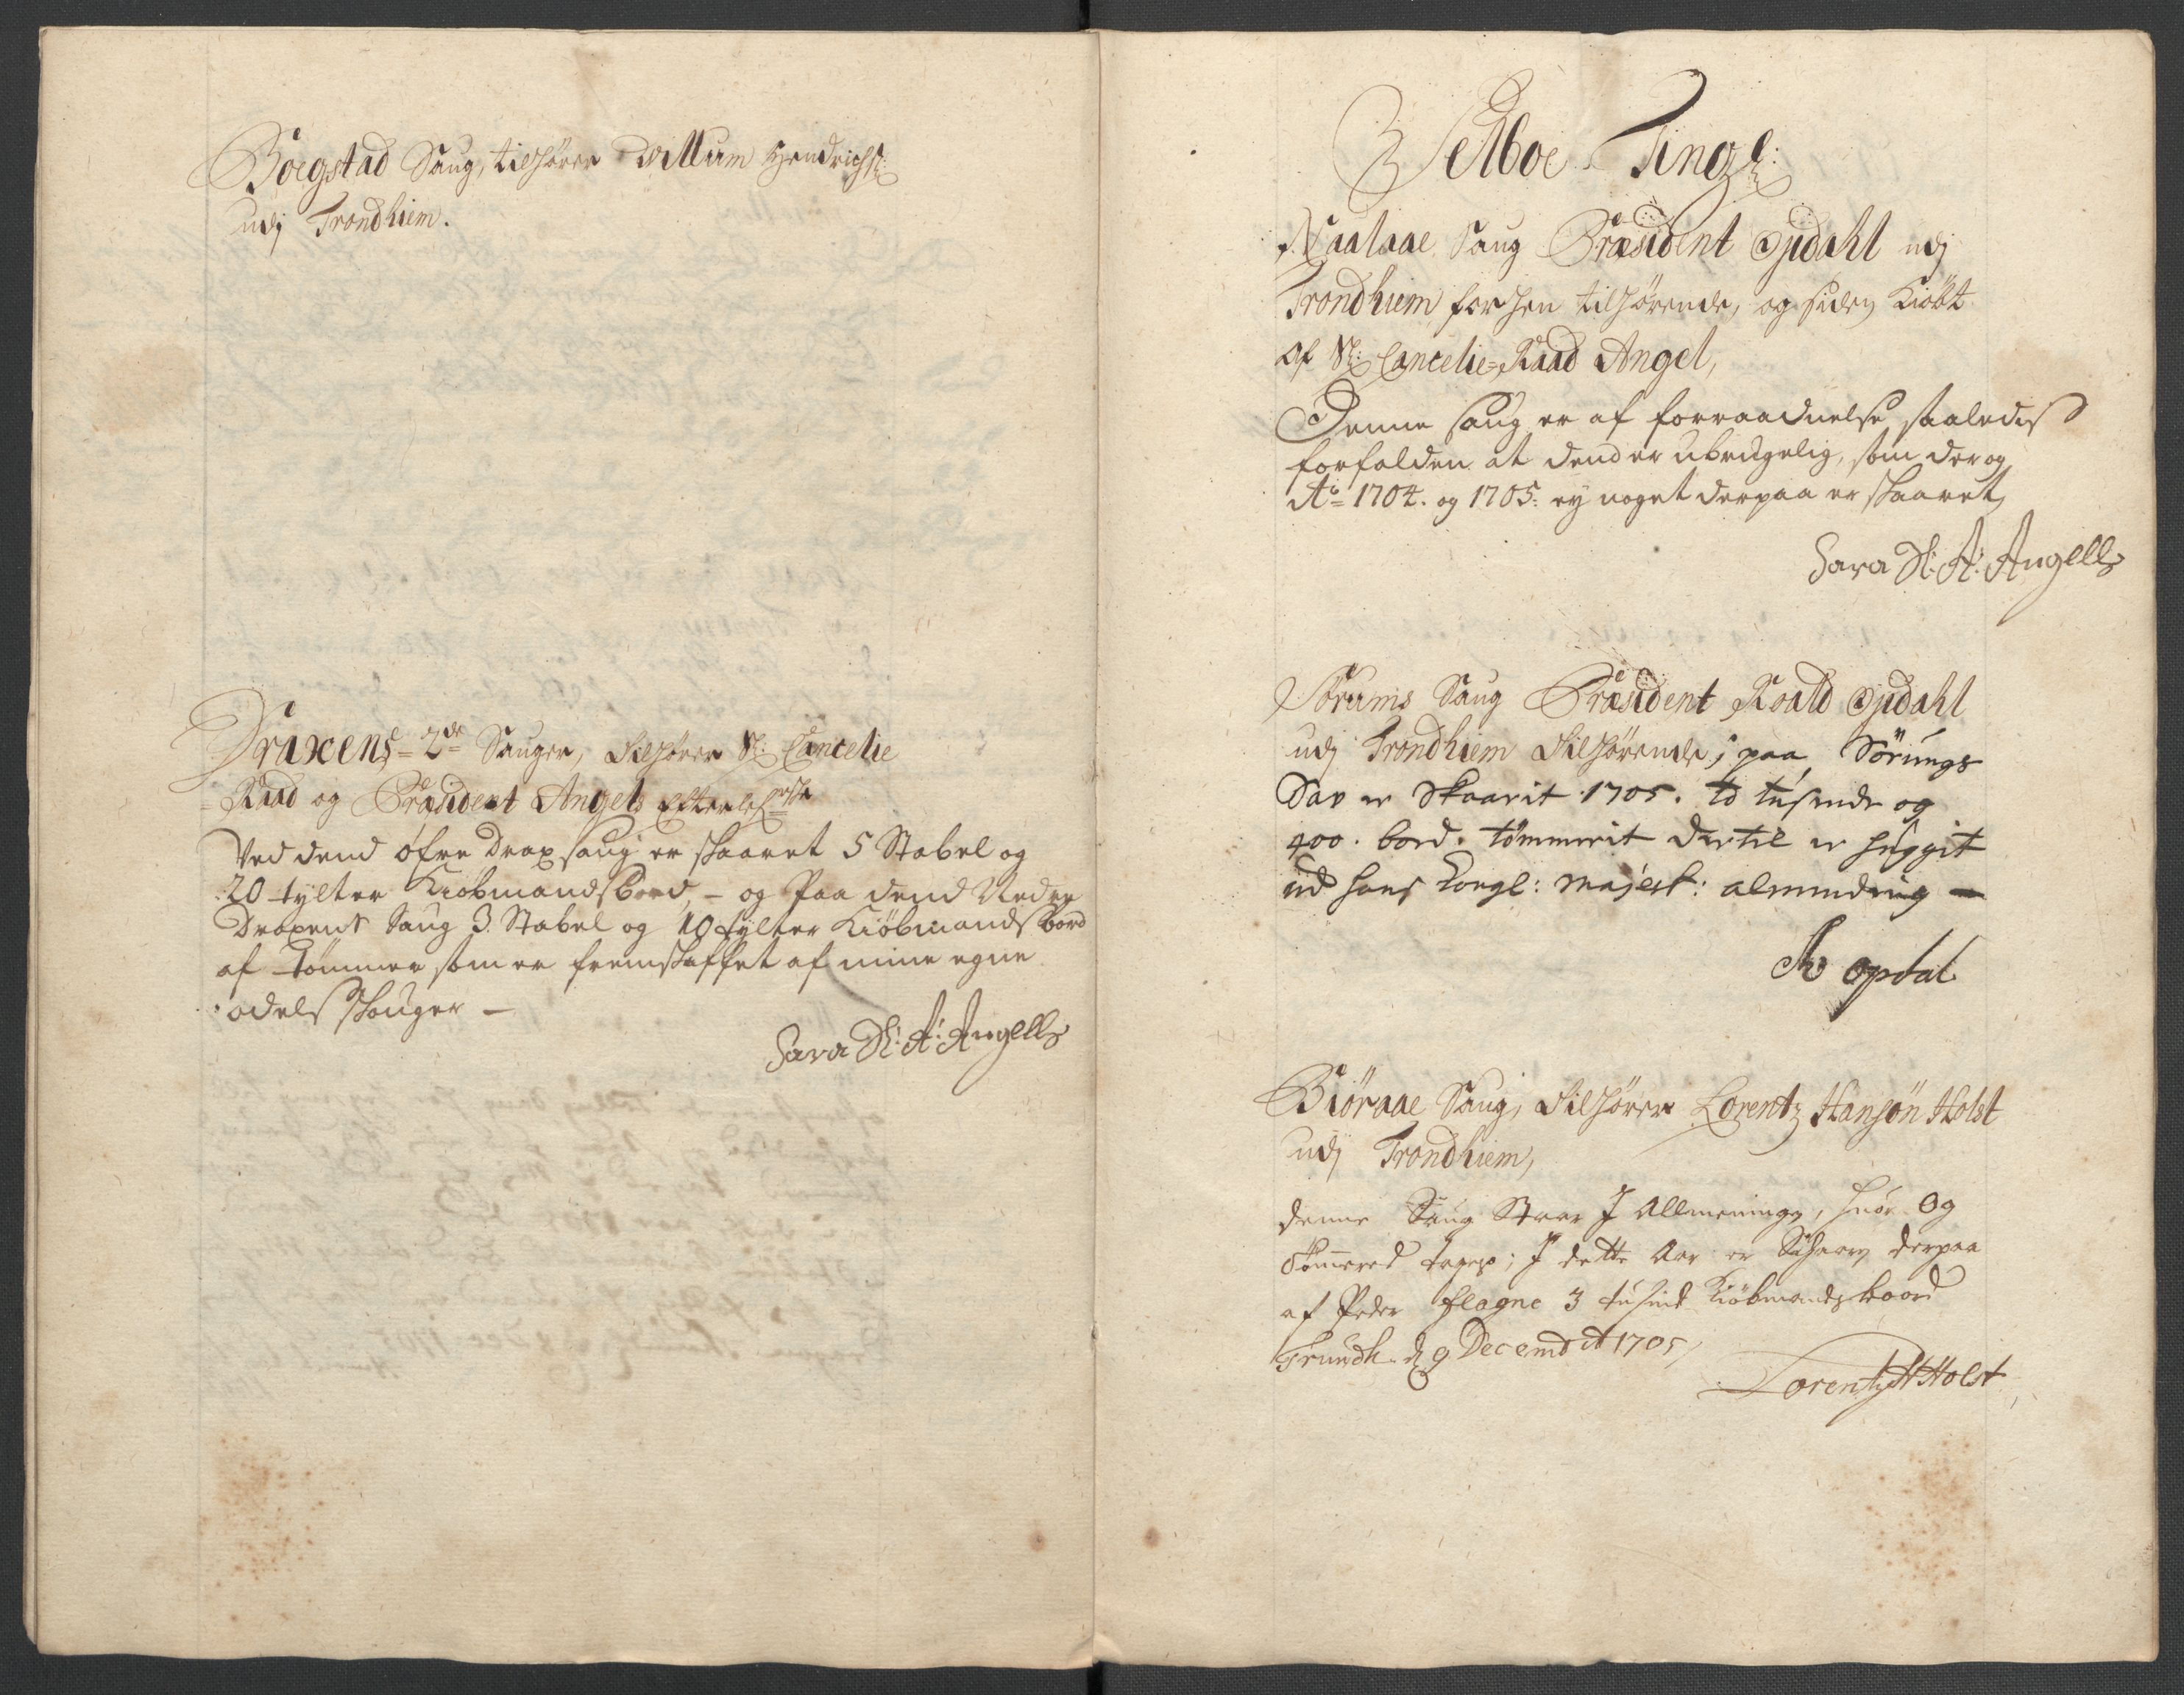 Borgstad Saug, tilhører Willum Hendrichs:
udj Trondhiem.
Draxens 2de Sauger, tilhører Sl: Cancelie
Raad og Præsident Angels Efterlefverske
Ved dend øfre Drax saug er skaaret 5 Stabel og
20 tylter Kiøbmandsbord, - og Paa dend Nedre
Draxens Saug 3 Stabel og 10 tylter Kiøbmandsbord
af Tømmer som er fremskaffet af mine egne
odels skouger -
Sara Sl: A: Angells
Selboe Tingl:
Saug Præsident Opdahl udj
Trondhiem forhen tilhørende, og siden Kiøbt
af Sl: Cancelie-Raad Angel,
Denne saug er af forraadnelse saaledis
forfalden at dend er ubrugelig, som der og
Ao 1704. og 1705. ey noget derpaa er skaaret,
Sara Sl: A: Angells
Sørums Saug Præsident Roald Opdahl
udj Trondhiem tilhørende; paa Sörungs
Sav er Skaarit 1705. to tusende og
400. bord. tömmerit dertil er huggit
ud hans Kongl: Majest: almending -
R opdal
Biøraae Saug, tilhører Lorentz Hansøn Holst
udj Trondhiem,
denne Saug Staar J Allmeningen, huor Og
tømered tages; J dette Aar er Schaaren derpaa
af Peder Flagne 3 tusind Kiøbmandsboord
Trundh. d 9 Decemb A 1705,
Lorentz H Holst